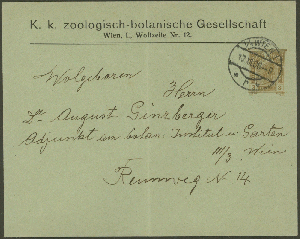 K. k. zoologisch-botanische Gesellschaft
Wien, I., Wollzeile Nr. 12.
WIEN
Wolgeboren
Herrn
Dr August Ginzberger
Adjunkt am botan. Institut u. Garten
III/3 Wien
Rennweg N 14